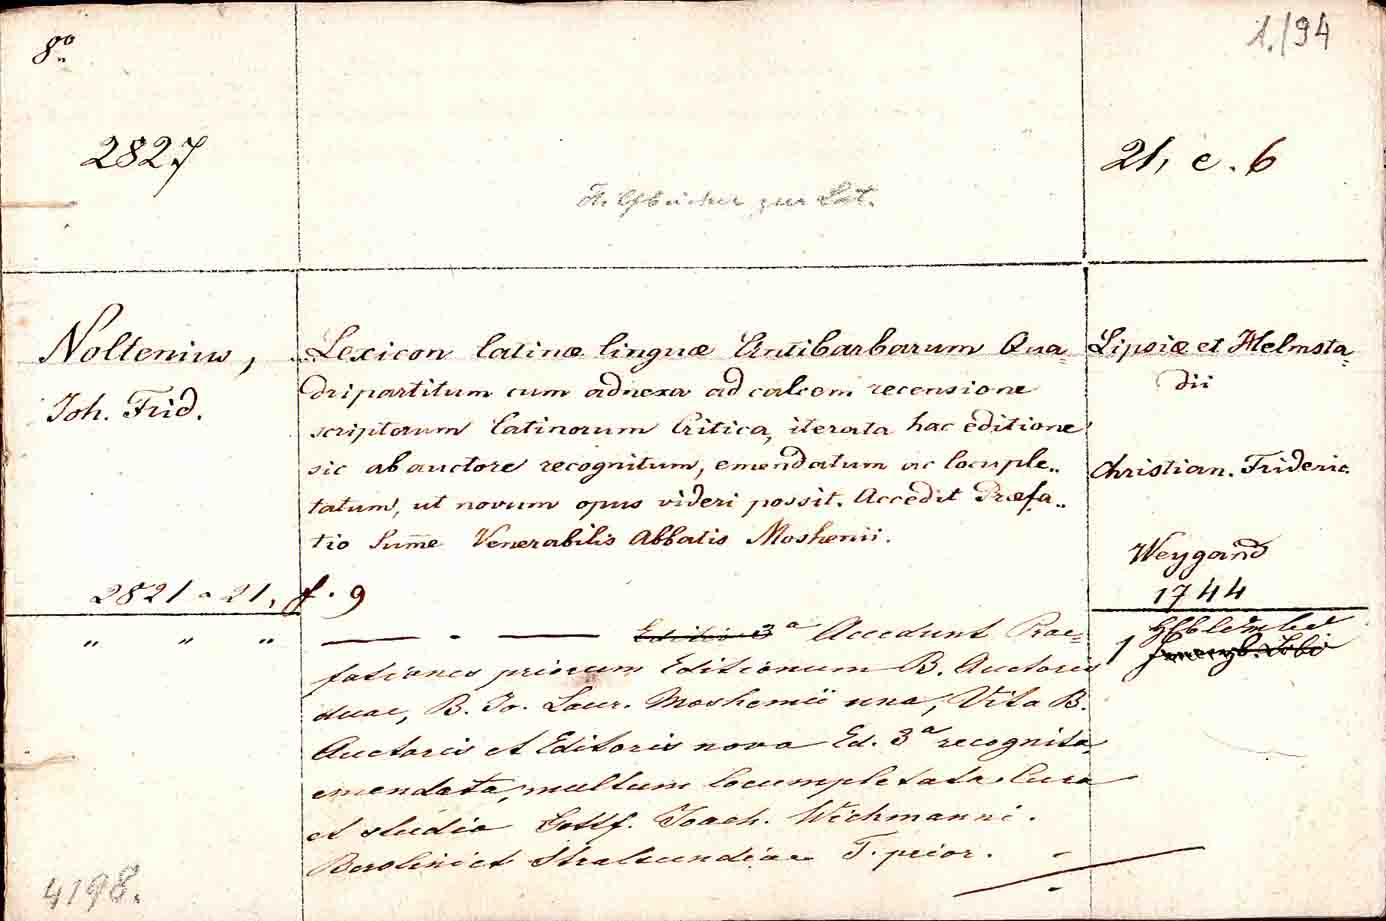 8º
1./94
2827
21, c. 6
Hilfbücher zur Lat.
Noltenius,
Joh. Frid.
Lexicon latinæ linguæ Antibarbarum Qua=
dripartitum cum adnexa ad calcem recensione
scriptorum latinorum Critica, iterata hac editione
sic ab auctore recognitum, emendatum ac locuple..
tatum, ut novum opus videri possit. Accedit Præfa..
tio Sume Venerabilis Abbatis Moshemii.
Lipsiæ et Helmsta=
dii
Christian. Frideric.
Weygand
1744
2821 a 21, f. 9
" " "
— . — Editio 3a Accedunt Prae=
fationes priorum Editionum B. Auctoris
duae, B. Jo. Laur. Moshemii una, Vita B.
Auctoris et Editoris nova Ed. 3a recognita
emendata, multum locumpletata cura
et studio Gottf. Joach. Wichmanni.
Berolini et Stralsundiae T. prior.
1
4198.